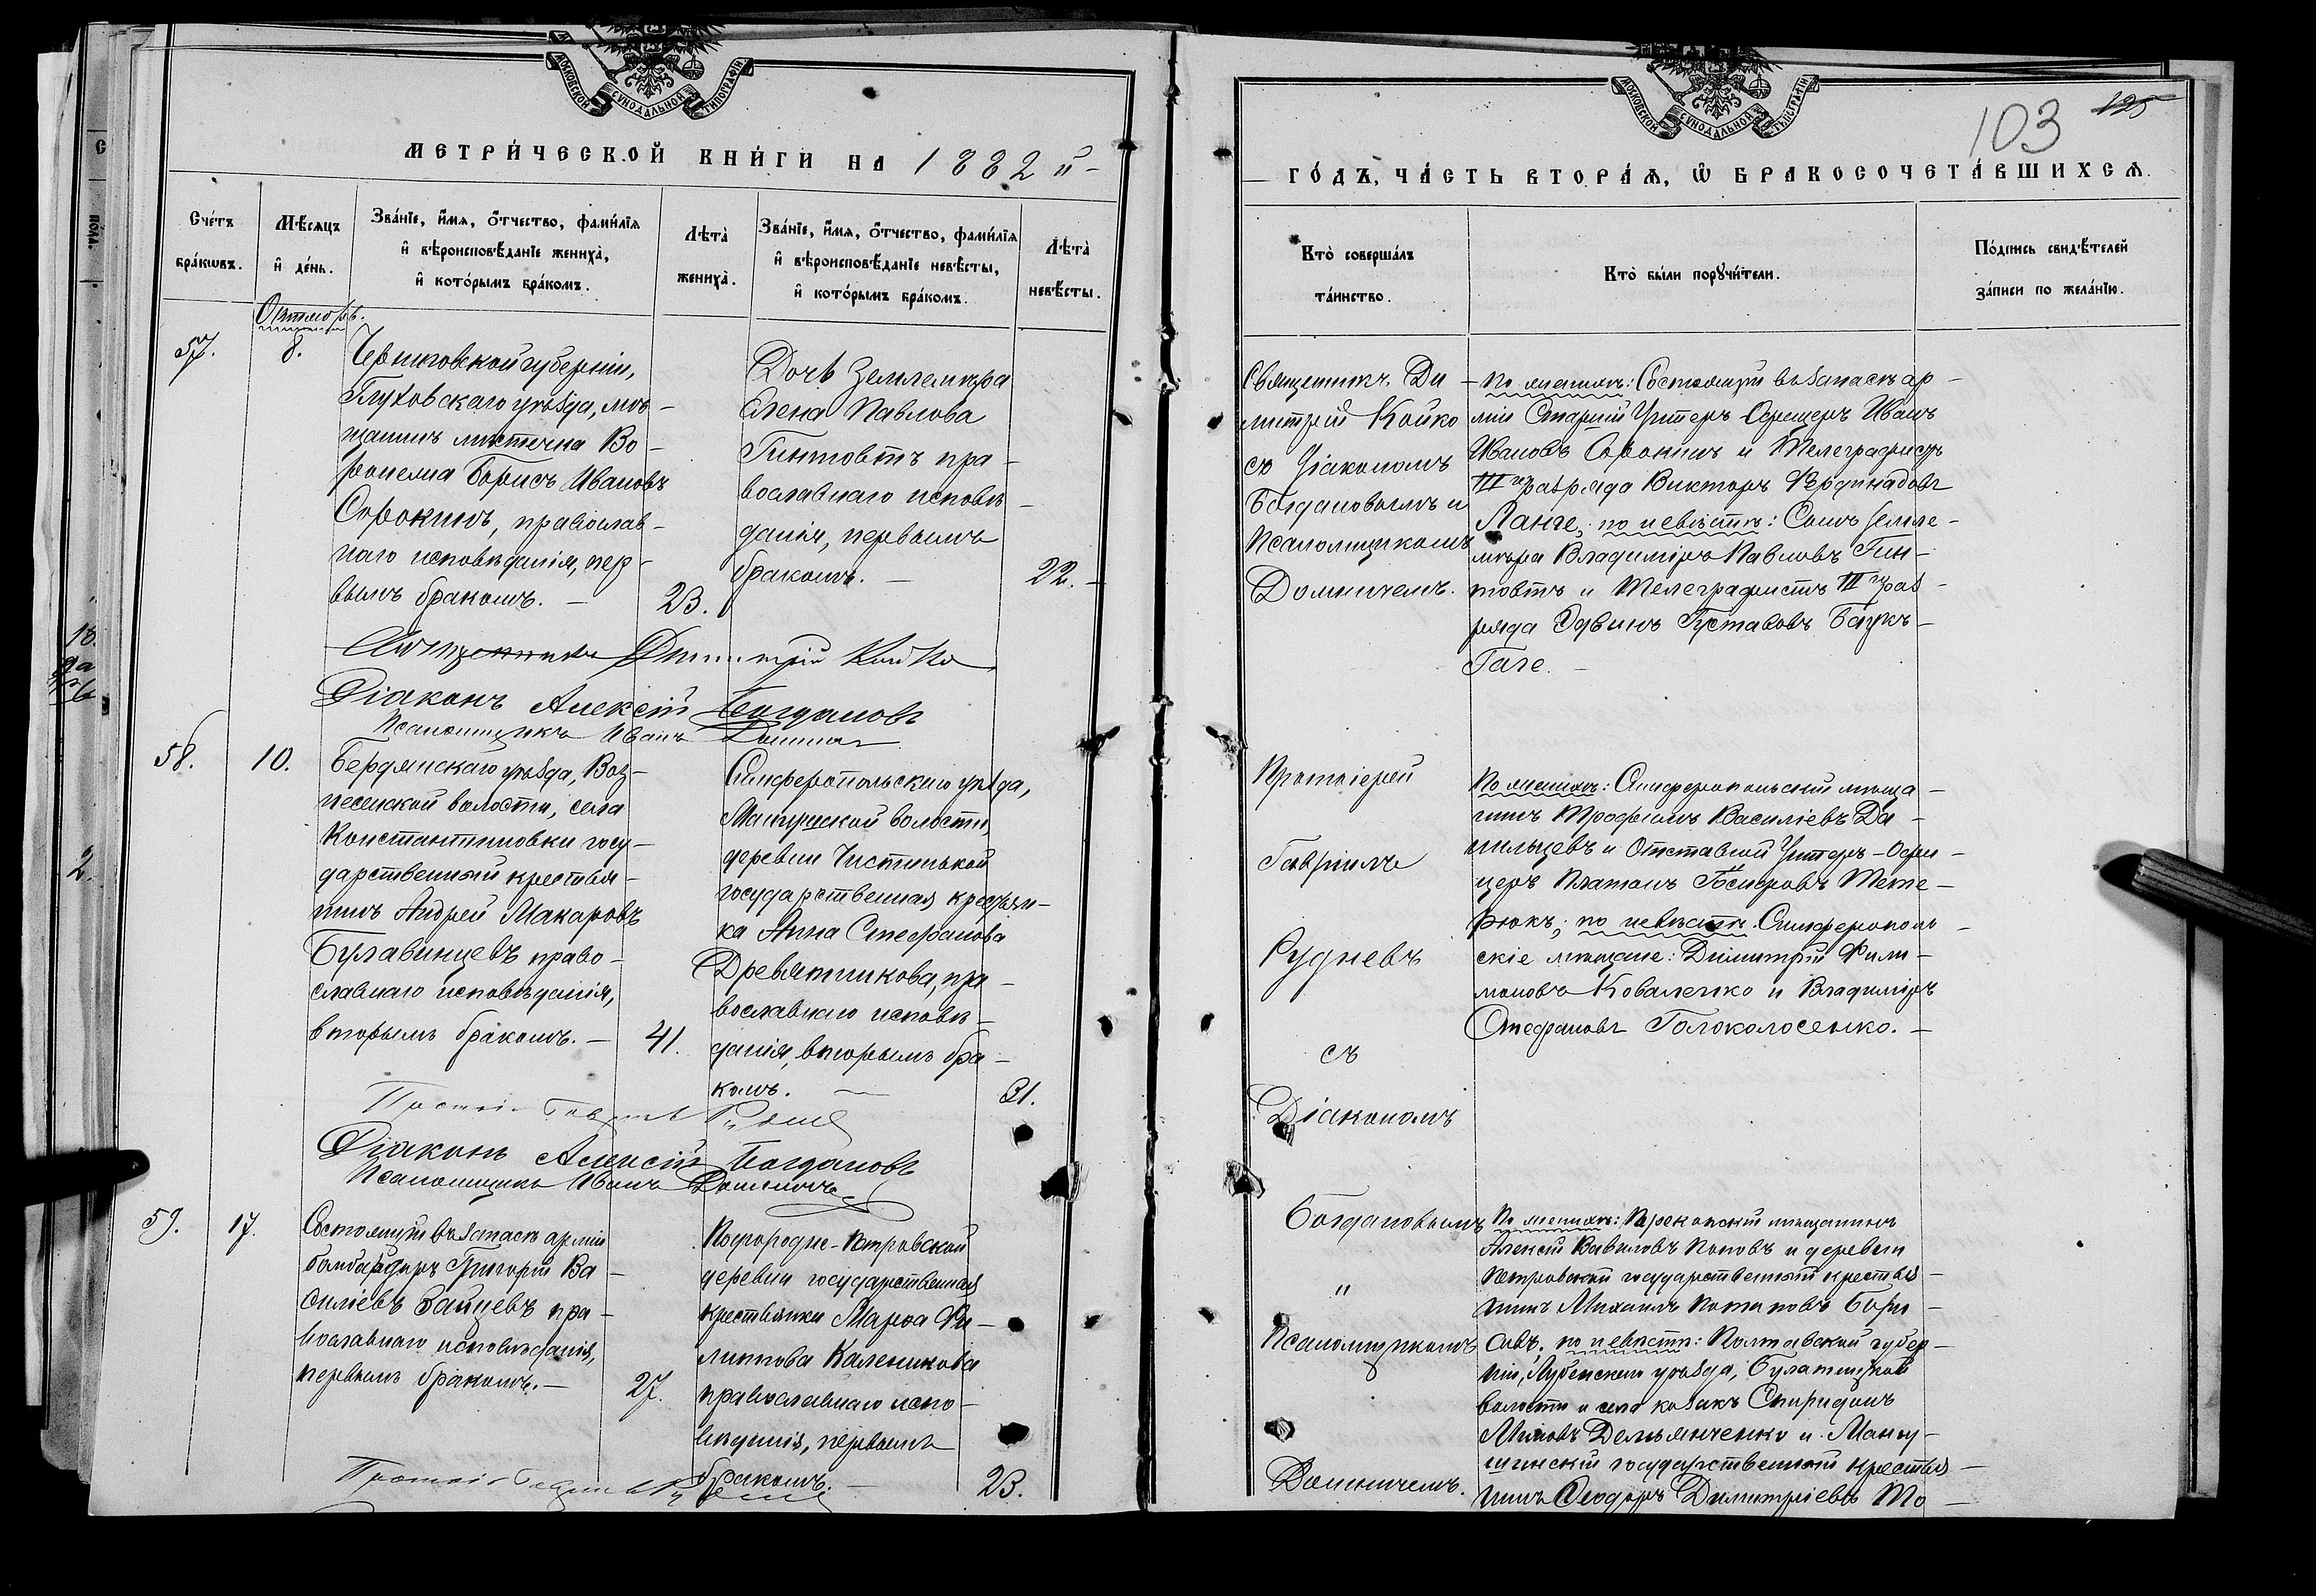 МОСКОВСКОЙ СѴНОДАЛЬНОЙ ТИПОГРАФІИ
МЕТРИ́ЧЕСКОЙ КНИ́ГИ НА 1882 й
Сче́тъ бра́кѡвъ.
Мѣ́сяцъ и҆ де́нь.
Зва́нїе, и҆́мя, ѻ҆́тчество, фами́лїя
и҆ вѣроисповѣ́данїе жениха̀,
и҆ кото́рымъ бра́комъ.
Лѣта̀ жениха̀.
Зва́нїе, и҆́мя, ѻ҆́тчество, фами́лїя
и҆ вѣроисповѣ́данїе невѣ́сты,
и҆ кото́рымъ бра́комъ.
Лѣта̀ невѣ́сты.
Октябрь.
57.
8.
Черниговской губерніи,
Глуховскаго уѣзда, мѣ-
щанинъ мѣстечка Во-
ронежа Борисъ Ивановъ
Сорокинъ, православ-
наго исповѣданія, пер-
вымъ бракомъ. —
23.
Дочь Землемѣра
Елена Павлова
Гинтовтъ пра-
вославнаго исповѣ-
данія, первымъ
бракомъ. —
22. —
Священникъ Димитрій Койко
Діаконъ Алексій Богдановъ
Псаломщикъ Иванъ Доминич
58.
10.
Бердянскаго уѣзда, Воз-
несенской волости, села
Константиновки госу-
дарственный крестья-
нинъ Андрей Макаровъ
Булавинцевъ право-
славнаго исповѣданія,
вторымъ бракомъ. —
41.
Симферопольскаго уѣзда,
Мангушской волости,
деревни Чистинькой
государственная крестьян-
ка Анна Стефанова
Древятникова, пра-
вославнаго исповѣ-
данія, вторымъ бра-
комъ. —
31.
Протоі Гавріилъ Руднев
Діаконъ Алексій Богдановъ
Псаломщикъ Иванъ Доминичъ
59.
17.
Состоящій въ запасѣ арміи
бомбардиръ Григорій Ва-
силіевъ Зайцевъ пра-
вославнаго исповѣданія,
первымъ бракомъ. —
27.
Петровской
деревни государственная
крестьянка Марѳа Фи-
липпова Каленикова
православнаго испо-
вѣданія, первымъ
бракомъ. —
23.
Протоі Гавріилъ Руднев
МОСКОВСКОЙ СѴНОДАЛЬНОЙ ТИПОГРАФІИ
103 125
ГО́ДЪ, ЧА́СТЬ ВТОРА́Я, Ѡ҆ БРАКОСОЧЕТА́ВШИХСЯ.
Кто̀ соверша́лъ
та́инство.
Кто̀ бы́ли порꙋчи́тели.
По́дпись свидѣ́телей
за́писи по жела́нїю.
Священникъ Ди-
митрій Койко
съ Діакономъ
Богдановымъ и
Псаломщикомъ
Доминичемъ.
По женихѣ: Состоящій въ запасѣ ар-
міи Старшій Унтеръ Офицеръ Иванъ
Ивановъ Сорокинъ и Телеграфистъ
III го разряда Викторъ Фердинадовъ
Ланге; по невѣстѣ: Сынъ земле-
мѣра Владиміръ Павловъ Гин-
товтъ и Телеграфистъ III го раз-
ряда Эдвинъ Густавовъ Баукъ-
Гаге. —
Протоіерей
Гавріилъ
Рудневъ
съ
Діакономъ
Богдановымъ
"
Псаломщикомъ
Доминичемъ.
По женихѣ: Симферопольскій мѣща-
нинъ Трофимъ Василіевъ Да-
нильцевъ и Отставной Унтеръ-Офи-
церъ Платонъ Тете-
рюкъ; по невѣстѣ: Симферополь-
скіе мѣщане: Димитрій Фили-
моновъ Коваленко и Владиміръ
Стефановъ Голоколосенко. —
По женихѣ: Перекопскій мѣщанинъ
Алексій Вавиловъ Поповъ и деревни
Петровской государственный крестья-
нинъ Михаилъ Потаповъ Бори-
совъ; по невѣстѣ: Полтавской губер-
ніи, Лубенскаго уѣзда,
волости и села козакъ Спиридонъ
Демьянченко и Мангу-
шскій государственный крестья-
нинъ Ѳеодоръ Димитріевъ То-